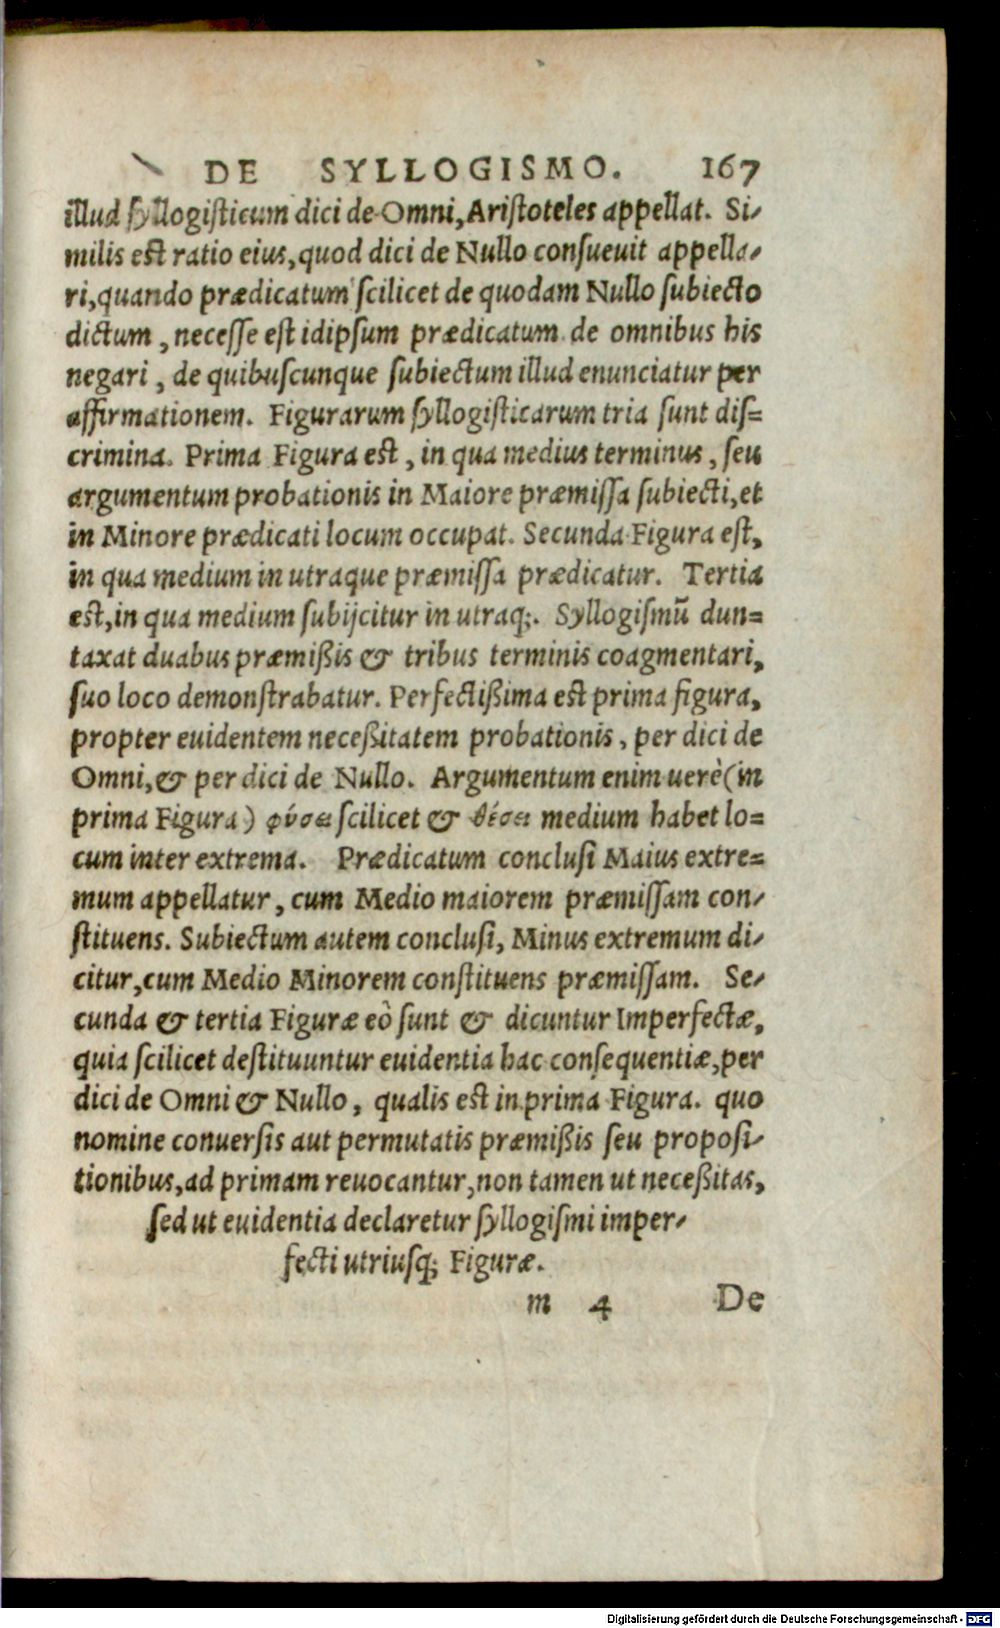 DE SYLLOGISMO. 167
illud ſyllogiſticum dici de Omni, Ariſtoteles appellat. Si⸗
milis eſt ratio eius, quod dici de Nullo conſueuit appella⸗
ri, quando prædicatum ſcilicet de quodam Nullo ſubiecto
dictum, neceſſe eſt idipſum prædicatum de omnibus his
negari, de quibuſcunque ſubiectum illud enunciatur per
affirmationem. Figurarum ſyllogiſticarum tria ſunt diſ⸗
crimina. Prima Figura eſt, in qua medius terminus, ſeu
argumentum probationis in Maiore præmiſſa ſubiecti, et
in Minore prædicati locum occupat. Secunda Figura eſt,
in qua medium in utraque præmiſſa prædicatur. Tertia
eſt, in qua medium ſubijcitur in utraq;. Syllogiſmũ dun⸗
taxat duabus præmißis & tribus terminis coagmentari,
ſuo loco demonſtrabatur. Perfectißima eſt prima figura,
propter euidentem neceßitatem probationis, per dici de
Omni, & per dici de Nullo. Argumentum enim uerè (in
prima Figura) φύσει ſcilicet & θέσει medium habet lo⸗
cum inter extrema. Prædicatum concluſi Maius extre⸗
mum appellatur, cum Medio maiorem præmiſſam con⸗
ſtituens. Subiectum autem concluſi, Minus extremum di⸗
citur, cum Medio Minorem conſtituens præmiſſam. Se⸗
cunda & tertia Figuræ eò ſunt & dicuntur Imperfectæ,
quia ſcilicet deſtituuntur euidentia hac conſequentiæ, per
dici de Omni & Nullo, qualis eſt in prima Figura. quo
nomine conuerſis aut permutatis præmißis ſeu propoſi⸗
tionibus, ad primam reuocantur, non tamen ut neceßitas,
ſed ut euidentia declaretur ſyllogiſmi imper⸗
fecti utriuſq; Figuræ.
m 4 De
Digitalisierung gefördert durch die Deutsche Forschungsgemeinschaft - DFG